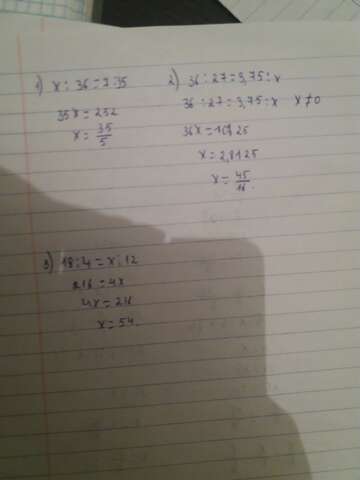 1) x : 36 = 7 : 35
35x = 252
x = 36/5
2) 36 : 27 = 3,75 : x
36 : 27 = 3,75 : x x ≠ 0
36x = 101,25
x = 2,8125
x = 45/16.
3) 18 : 4 = x : 12
216 = 4x
4x = 216
x = 54.